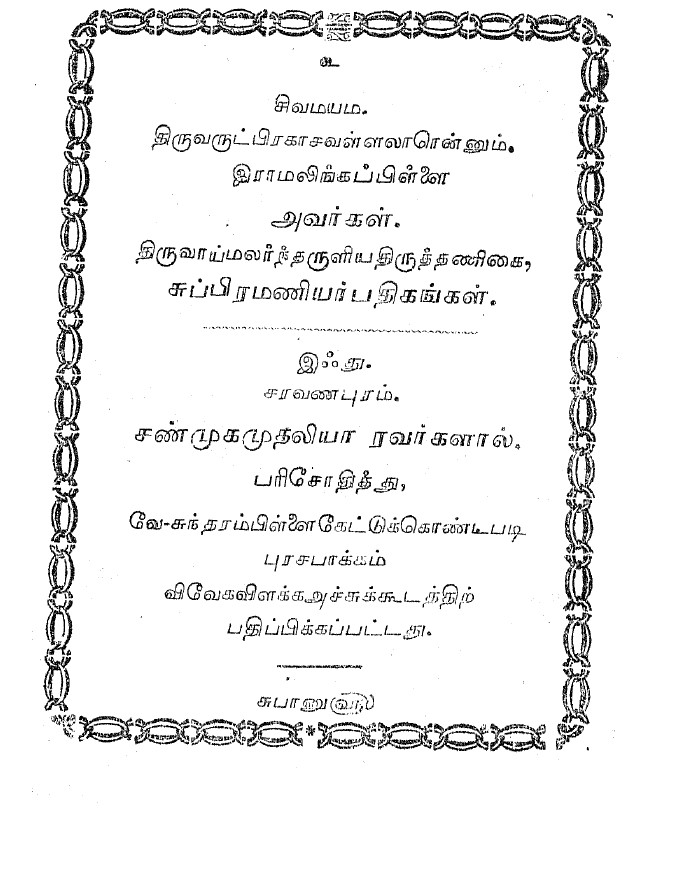 உ
சிவமயம.
திருவருட்பிரகாசவள்ளலாரென்னும்.
இராமலிங்கப்பிள்ளை
அவர்கள்.
திருவாய்மலர்ந்தருளியதிருத்தணிகை,
சுப்பிரமணியர்பதிகங்கள்.
இஃது.
சரவணபுரம்.
சண்முகமுதலியா ரவர்களால்.
பரிசோதித்து,
வே-சுந்தரம்பிள்ளைகேட்டுக்கொண்டபடி
புரசபாக்கம்
விவேகவிளக்கஅச்சுக்கூடத்திற்
பதிப்பிக்கப்பட்டது.
சுபானு௵